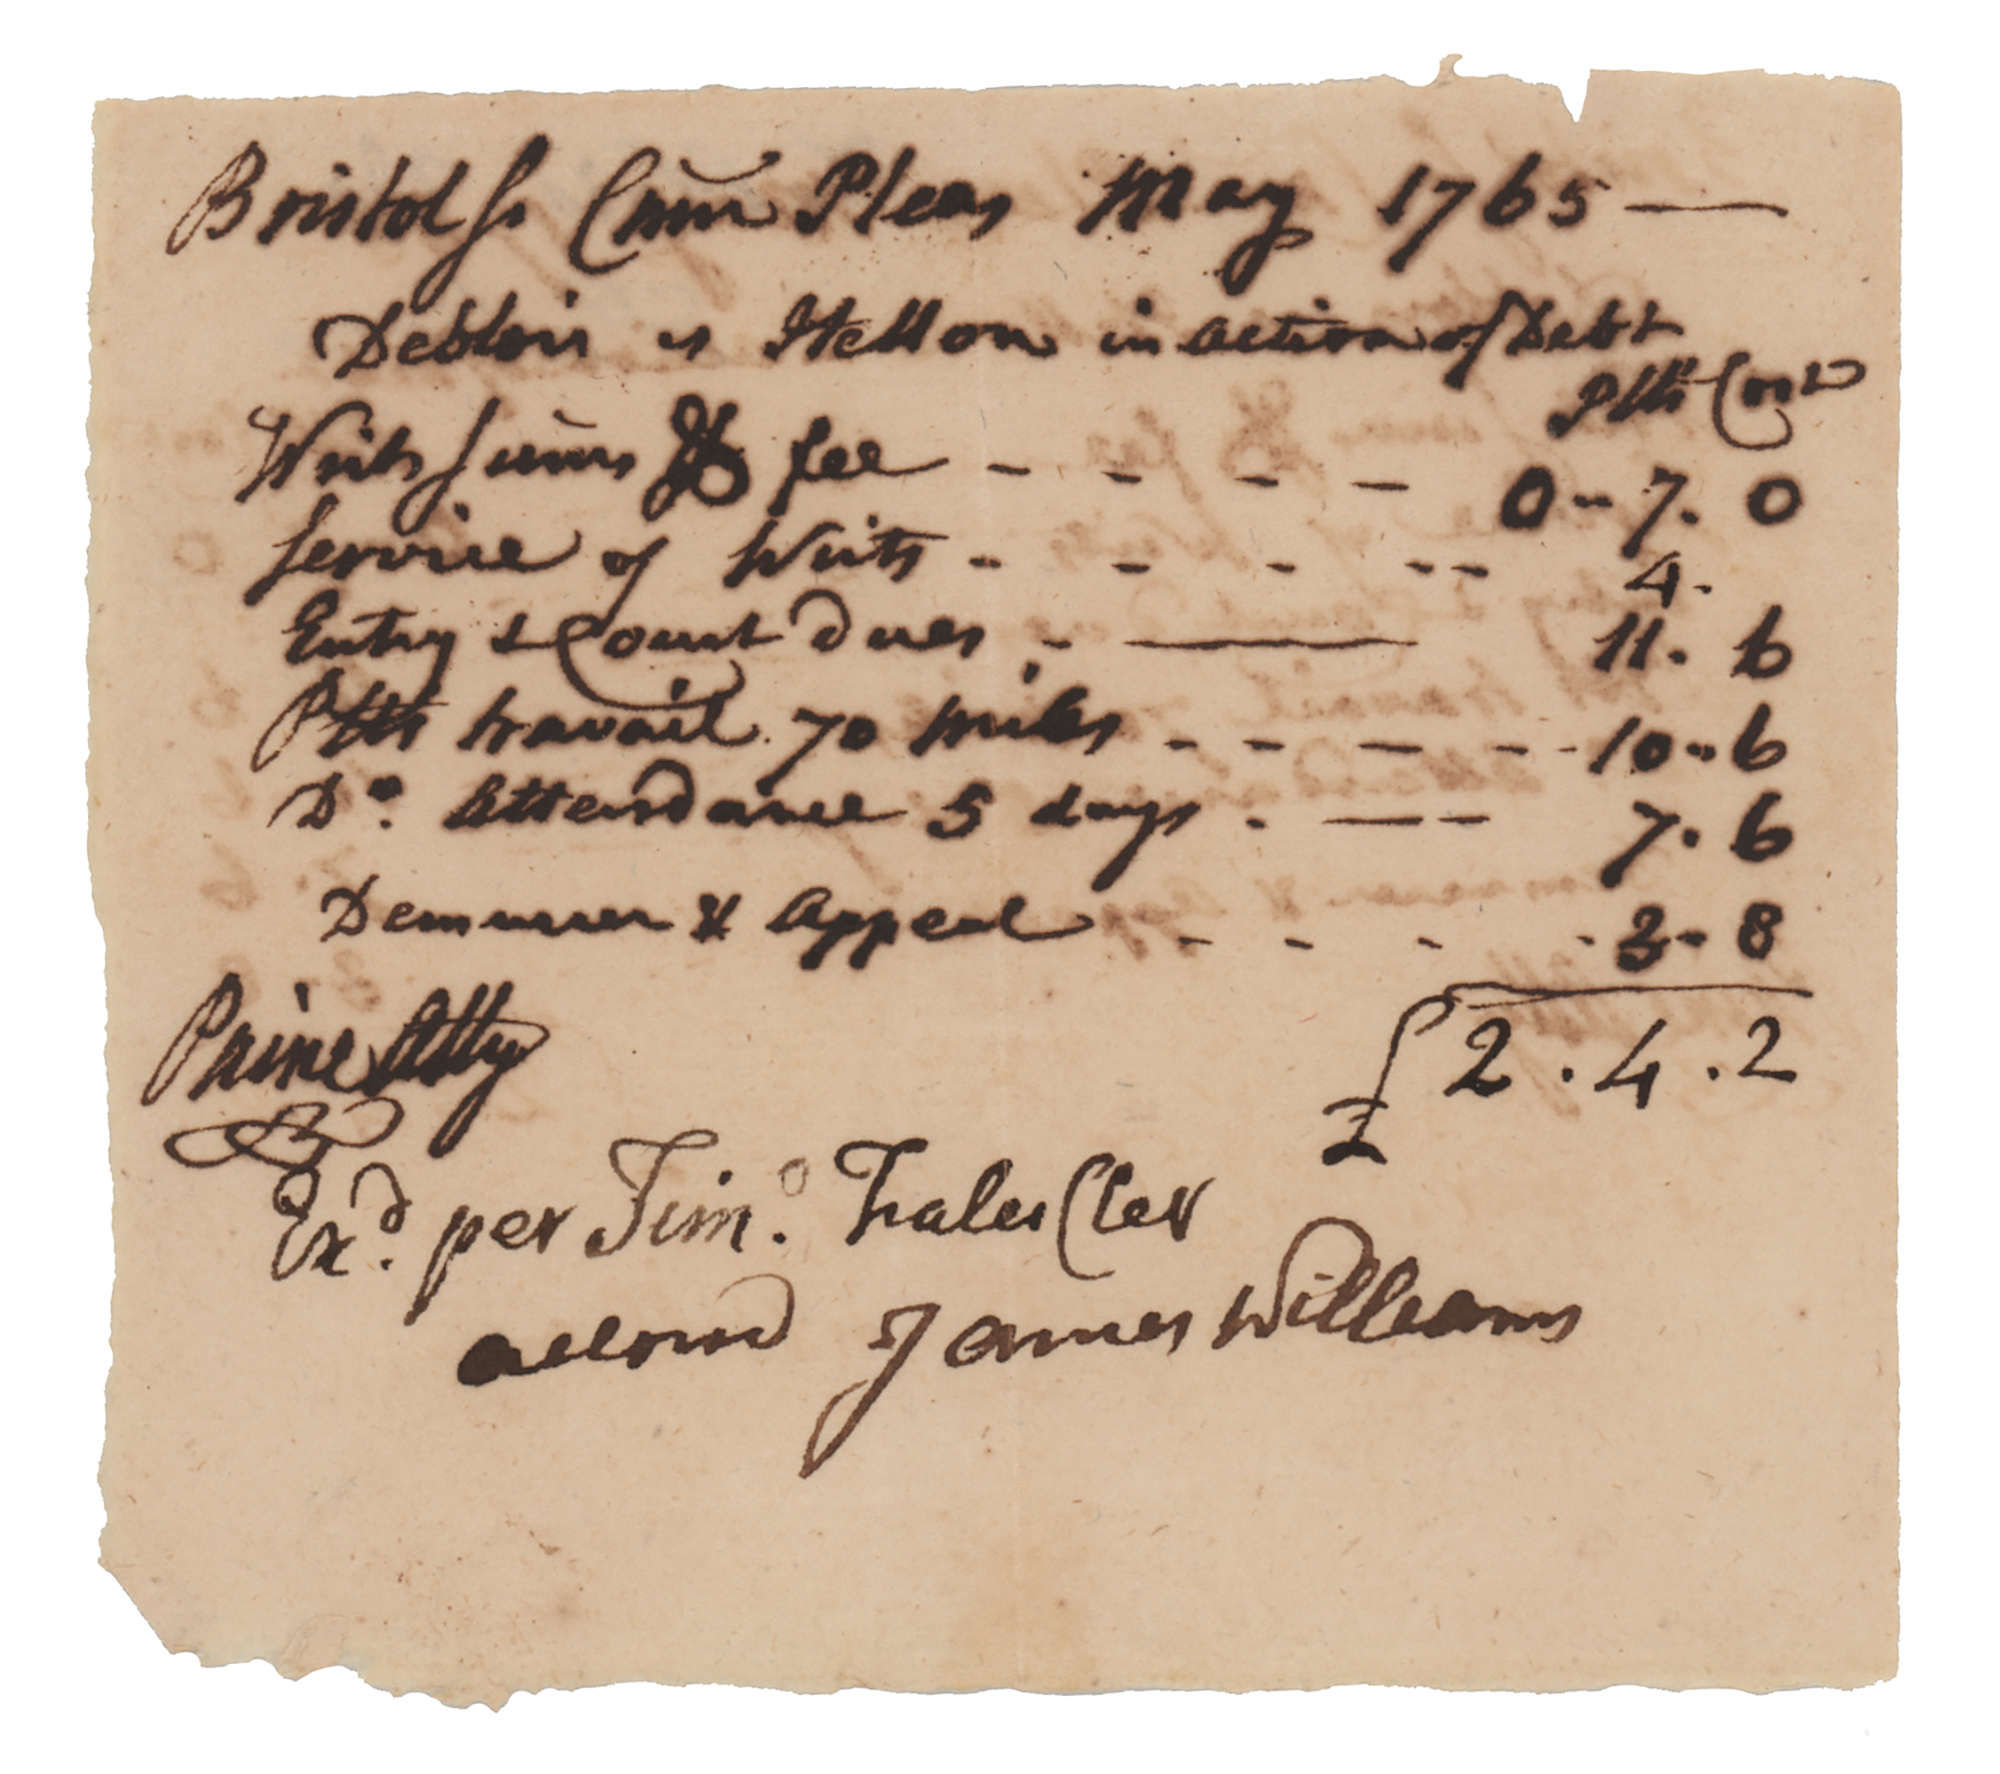 Bristol ss Com̃ Pleas May 1765 —
Deblois vs in action of Debt
Plts Cost
Writs sum̃s & fee - - - - 0 - 7. 0
Service of Writs - - - - - 4 -
Entry & Court dues - — 11. 6
Plts travail 70 miles - - - - - 10 - 6
Do. Attendance 5 days - — - 7. 6
Demurrer & Appeal - - - - 3 - 8
£ 2. 4. 2
Paine Atty
Exd. per Timo. Fales Cler
allowd James Williams